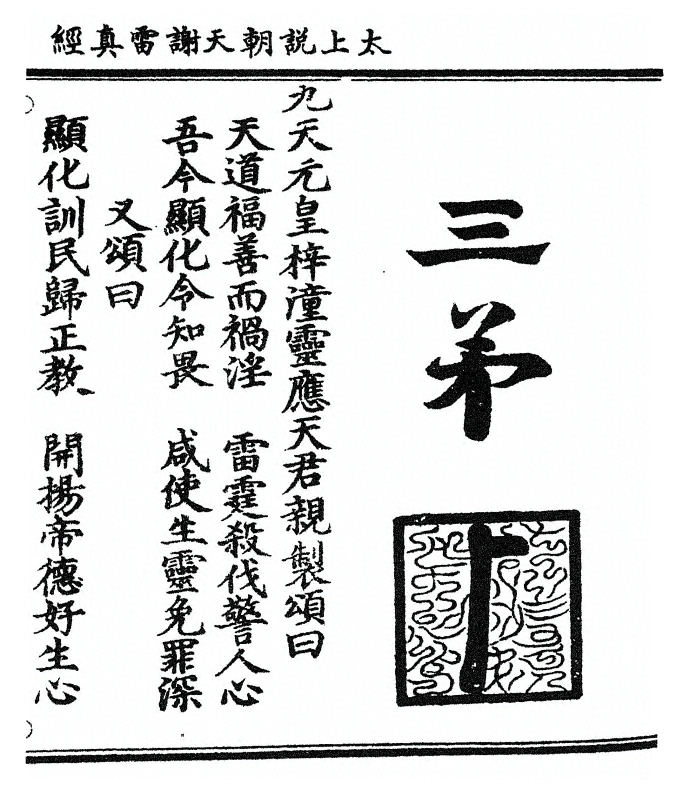 太上説朝天謝雷真經
三
九天元皇梓潼靈應天君親製頌曰
天道福善而禍淫 雷霆殺伐警人心
吾今顯化令知畏 咸使生靈免罪深
又頌曰
顯化訓民歸正教、 開揚帝德好生心